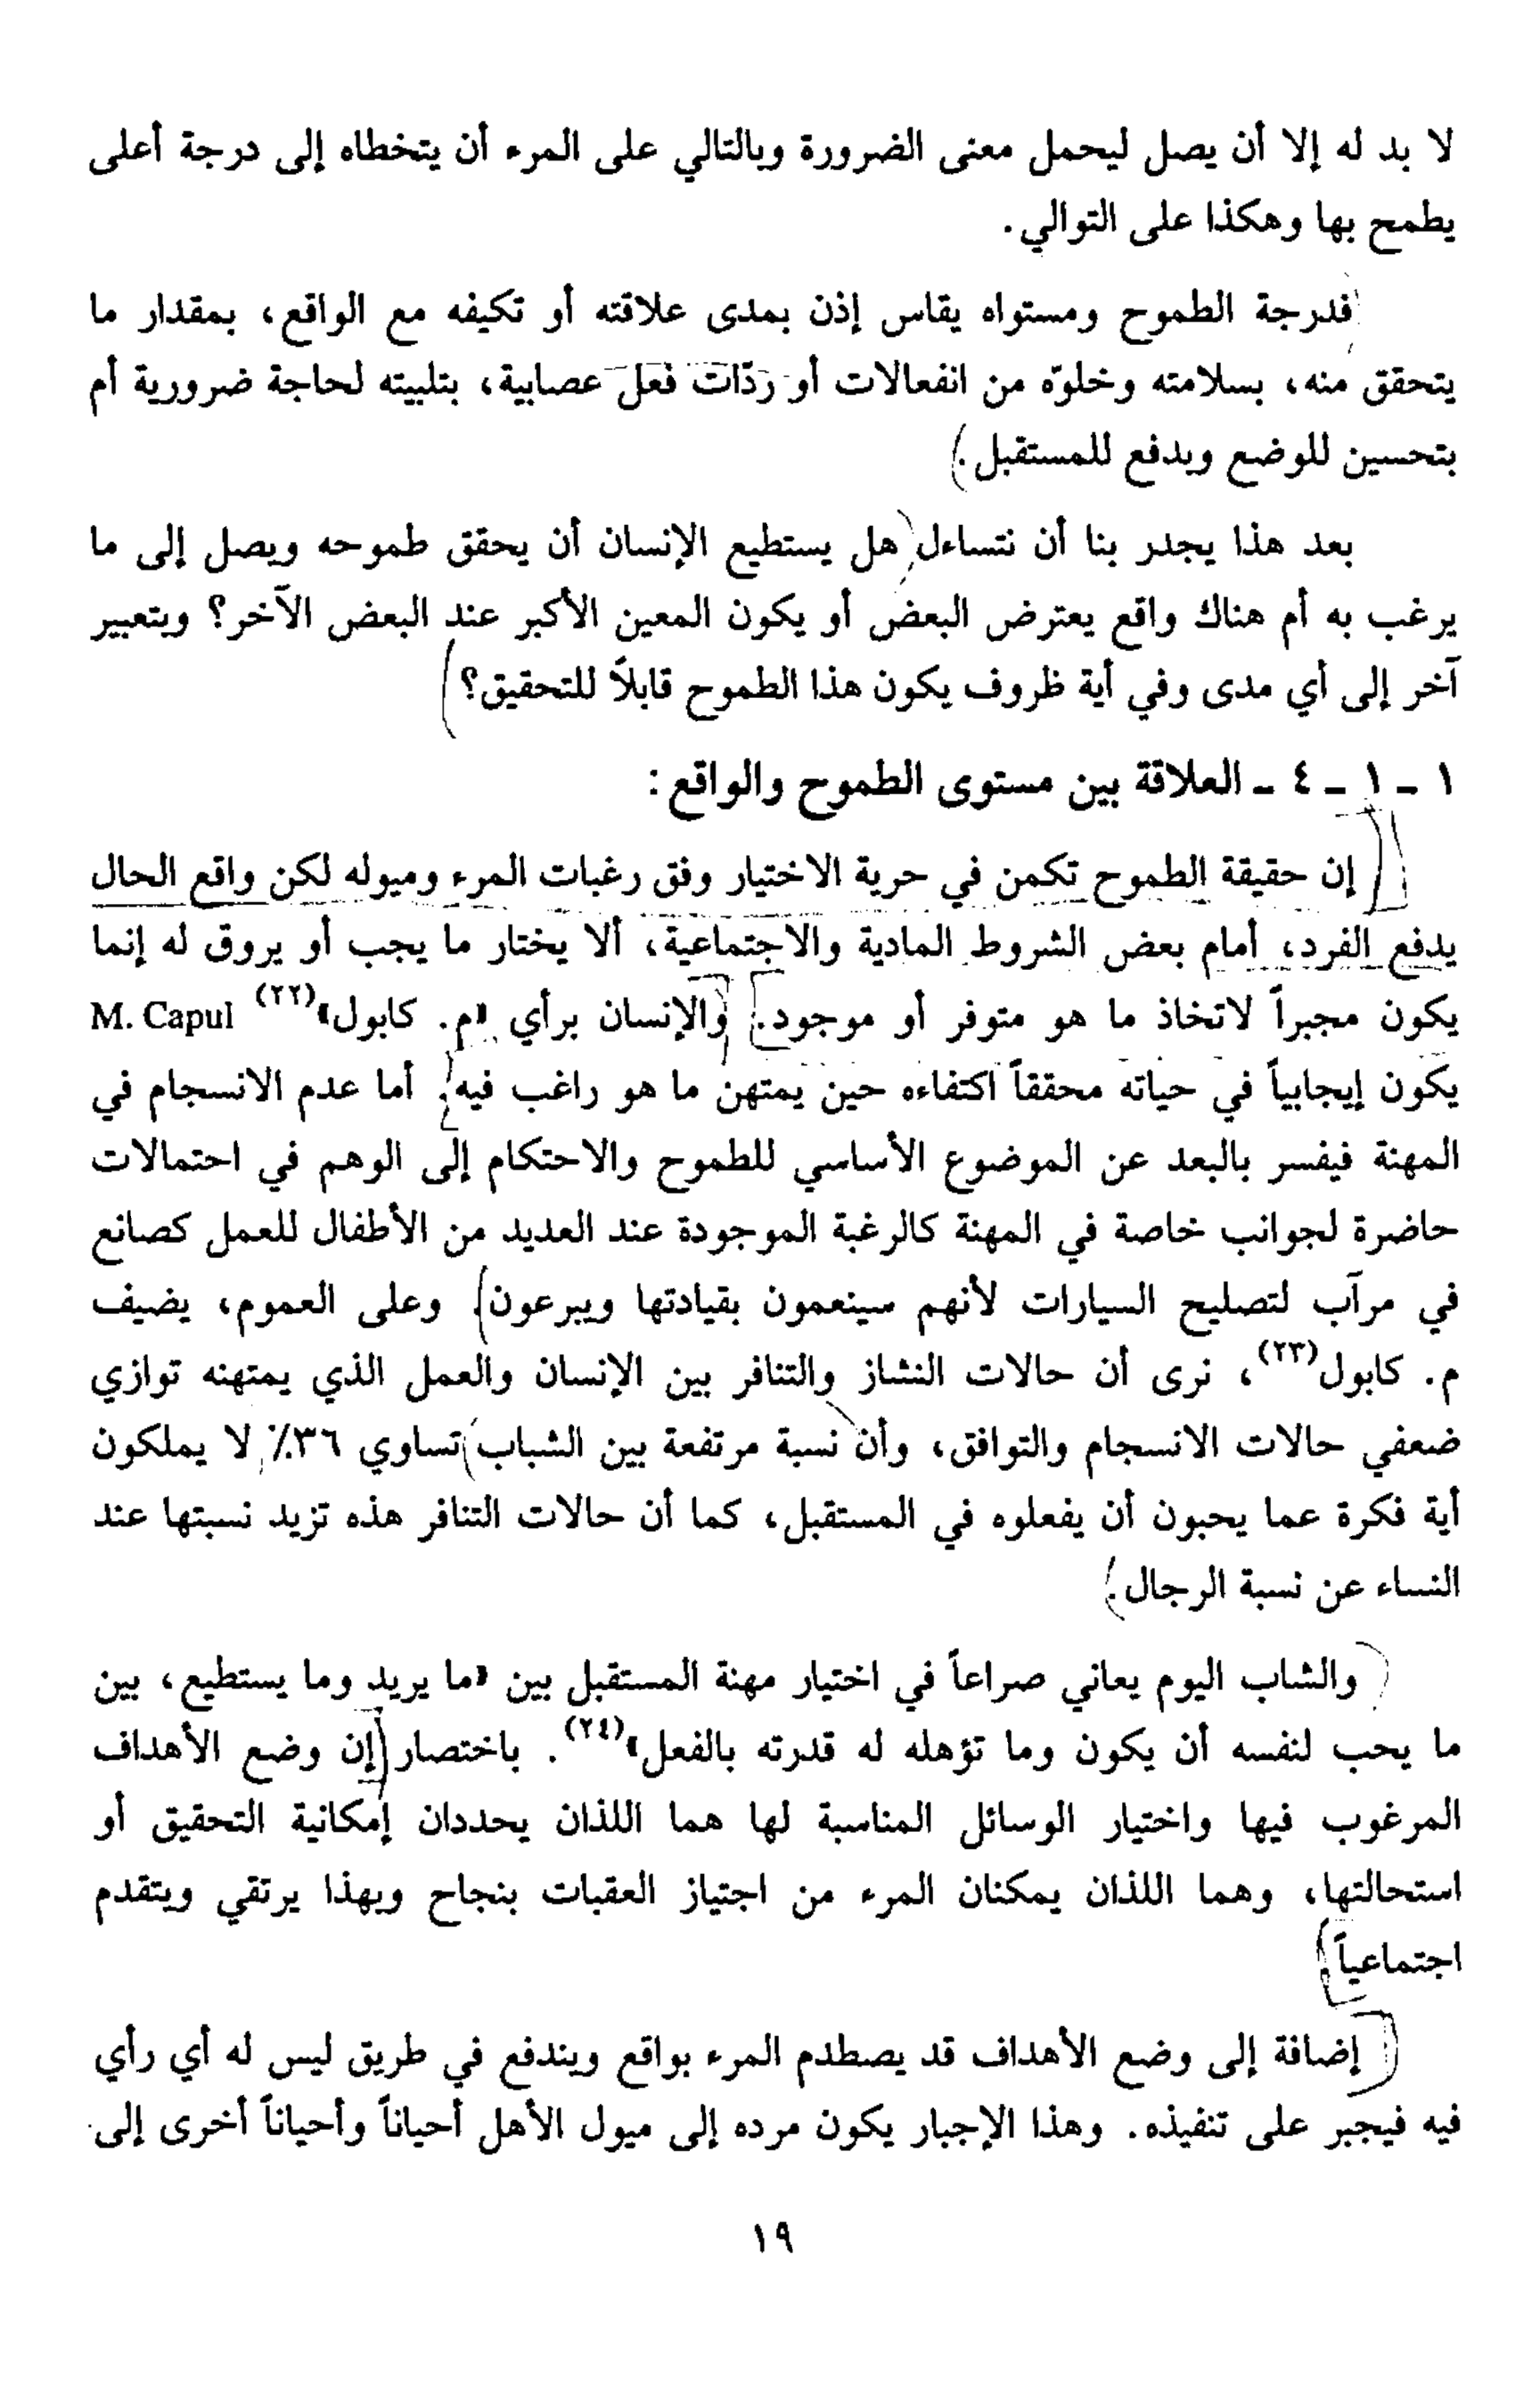 لا بد له إلا أن يصل ليحمل معنى الضرورة وبالتالي على المرء أن يتخطاه إلى درجة أعلى
يطمح بها وهكذا على التوالي.
فدرجة الطموح ومستواه يقاس إذن بمدى علاقته أو تكيفه مع الواقع، بمقدار ما
يتحقق منه، بسلامته وخلوّه من انفعالات أو ردّات فعل عصابية، بتلبيته لحاجة ضرورية أم
بتحسين للوضع وبدفع للمستقبل.
بعد هذا يجدر بنا أن نتساءل هل يستطيع الإنسان أن يحقق طموحه ويصل إلى ما
يرغب به أم هناك واقع يعترض البعض أو يكون المعين الأكبر عند البعض الآخر؟ وبتعبير
آخر إلى أي مدى وفي أية ظروف يكون هذا الطموح قابلاً للتحقيق؟
١ - ١ - ٤ - العلاقة بين مستوى الطموح والواقع:
إن حقيقة الطموح تكمن في حرية الاختيار وفق رغبات المرء وميوله لكن واقع الحال
يدفع الفرد، أمام بعض الشروط المادية والاجتماعية، ألا يختار ما يجب أو يروق له إنما
يكون مجبراً لاتخاذ ما هو متوفر أو موجود. والإنسان برأي «م. كابول»(٢٢) M. Capul
يكون إيجابياً في حياته محققاً اكتفاءه حين يمتهن ما هو راغب فيه. أما عدم الانسجام في
المهنة فيفسر بالبعد عن الموضوع الأساسي للطموح والاحتكام إلى الوهم في احتمالات
حاضرة لجوانب خاصة في المهنة كالرغبة الموجودة عند العديد من الأطفال للعمل كصانع
في مرآب لتصليح السيارات لأنهم سينعمون بقيادتها ويبرعون. وعلى العموم، يضيف
م. كابول(٢٣)، نرى أن حالات النشاز والتنافر بين الإنسان والعمل الذي يمتهنه توازي
ضعفي حالات الانسجام والتوافق، وأن نسبة مرتفعة بين الشباب تساوي ٣٦٪ لا يملكون
أية فكرة عما يحبون أن يفعلوه في المستقبل، كما أن حالات التنافر هذه تزيد نسبتها عند
النساء عن نسبة الرجال.
والشاب اليوم يعاني صراعاً في اختيار مهنة المستقبل بين «ما يريد وما يستطيع، بين
ما يحب لنفسه أن يكون وما تؤهله له قدرته بالفعل»(٢٤). باختصار إن وضع الأهداف
المرغوب فيها واختيار الوسائل المناسبة لها هما اللذان يحددان إمكانية التحقيق أو
استحالتها، وهما اللذان يمكنان المرء من اجتياز العقبات بنجاح وبهذا يرتقي ويتقدم
اجتماعياً.
إضافة إلى وضع الأهداف قد يصطدم المرء بواقع ويندفع في طريق ليس له أي رأي
فيه فيجبر على تنفيذه. وهذا الإجبار يكون مرده إلى ميول الأهل أحياناً وأحياناً أخرى إلى
١٩